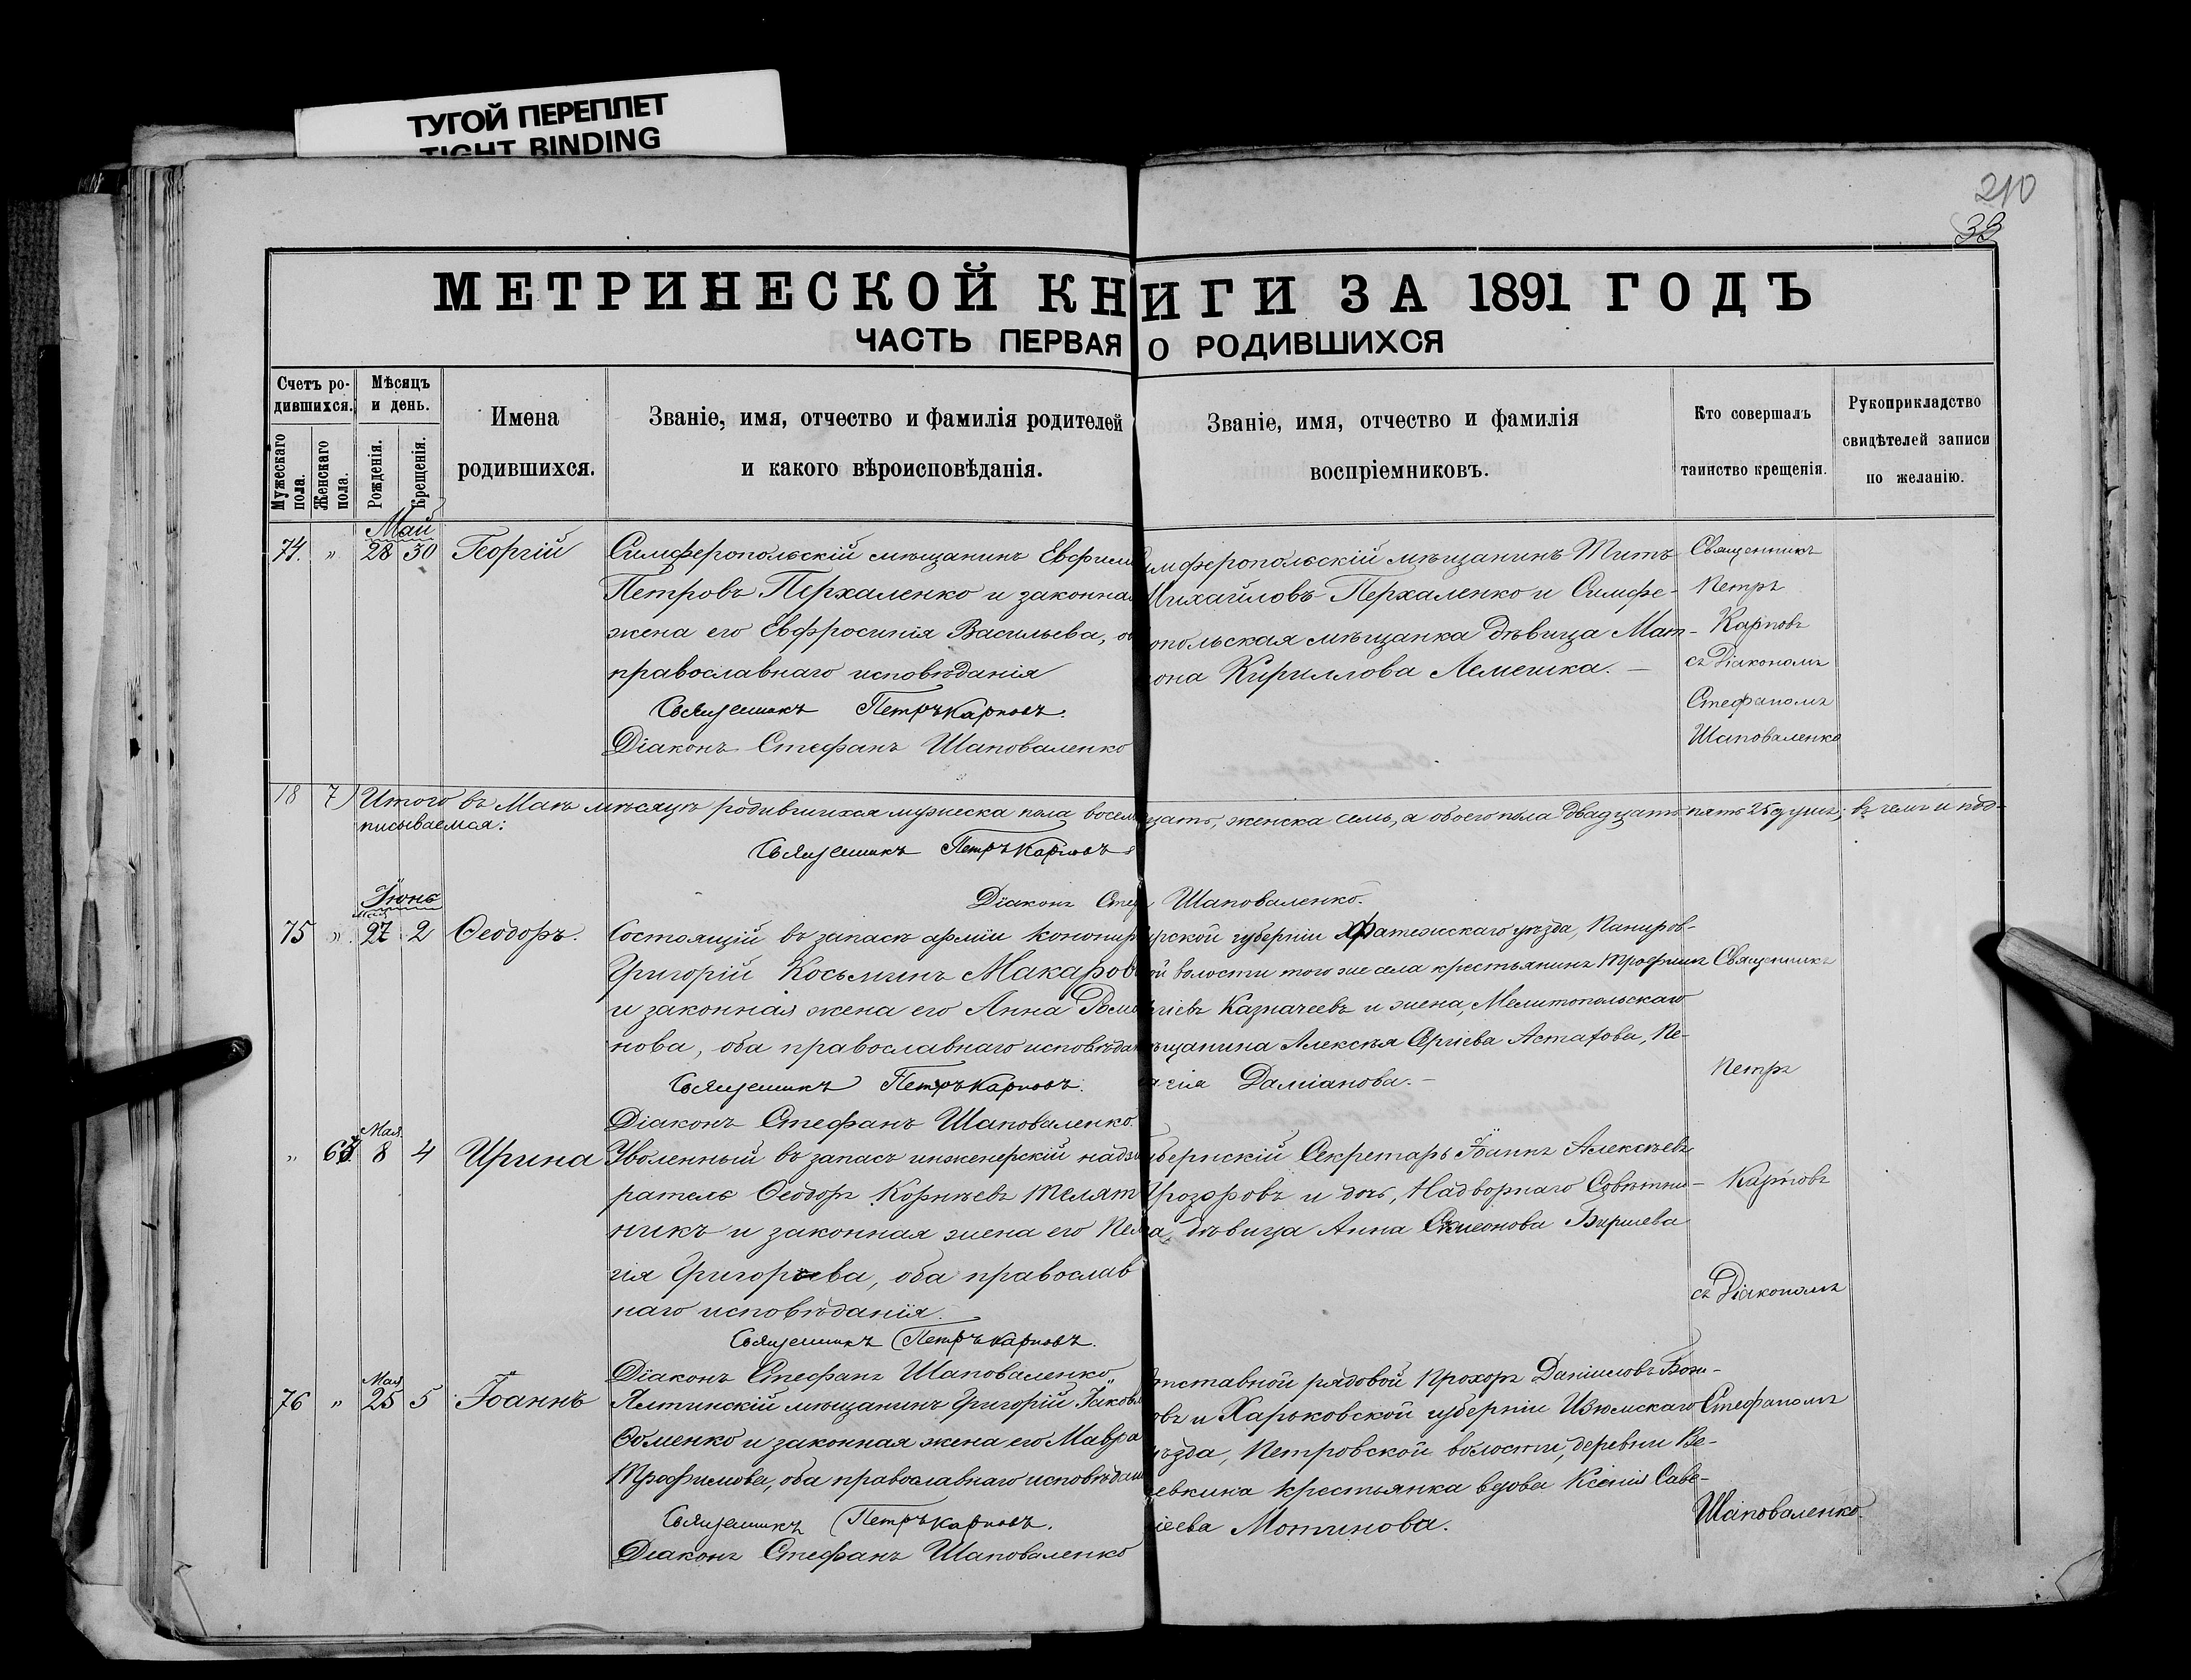 ТУГОЙ ПЕРЕПЛЕТ
TIGHT BINDING
210
39
МЕТРИЧЕСКОЙ КНИГИ ЗА 1891 ГОДЪ
ЧАСТЬ ПЕРВАЯ О РОДИВШИХСЯ
Счетъ ро-
дившихся.
Мужескаго пола.
Женскаго пола.
Мѣсяцъ
и день.
Рожденія.
Крещенія.
Имена
родившихся.
Званіе, имя, отчество и фамилія родителей
и какого вѣроисповѣданія.
Званіе, имя, отчество и фамилія
воспріемниковъ.
Кто совершалъ
таинство крещенія.
Рукоприкладство
свидѣтелей записи
по желанію.
Май
74. " 28 30 Георгій
Симферопольскій мѣщанинъ Евфим
Петровъ Перхаленко и законная
жена его Евфросинія Васильева, об
православнаго исповѣданія
Священникъ Петръ Карповъ.
Діаконъ Стефанъ Шаповаленко
имферопольскій мѣщанинъ Титъ
Михайловъ Перхаленко и Симфе-
опольская мѣщанка дѣвица Мат-
она Кириллова Лемешка. —
Священникъ
Петръ
Карповъ
съ Діакономъ
Стефаномъ
Шаповаленко
18 7 Итого въ Маѣ мѣсяцѣ родившихся мужеска пола восем цать, женска семь, а обоего пола двадцать пять 25 душъ; въ чемъ и под-
писываемся:
Священникъ Петръ Карповъ
Діаконъ Стеф Шаповаленко.
Іюнь
Мая
75 " 27 2 Ѳеодоръ.
Состоящій въ запасѣ арміи канонир
Григорій Косьминъ Макаров
и законная жена его Анна Рома
нова, оба православнаго исповѣдан
Священникъ Петръ Карповъ.
Діаконъ Стефанъ Шаповаленко.
урской губерніи Фатежскаго уѣзда,
ой волости того же села крестьянинъ Трофимъ
ргіевъ Казначеевъ и жена, Мелитопольскаго
ѣщанина Алексѣя Сергіева Астафова, Пе-
агія Даміанова. —
Мая
" 63 8 4 Ирина
Уволенный въ запасъ инженерскій надзи
ратель Ѳеодоръ Корнѣевъ Телят
никъ и законная жена его Пела
гія Григорьева, оба православ
наго исповѣданія.
Священникъ Петръ Карповъ.
Діаконъ Стефанъ Шаповаленко
убернскій Секретарь Іоаннъ Алексѣевъ
и дочь, Надворнаго Совѣтни-
а, дѣвица Анна Симеонова
Мая
76 " 25 5 Іоаннъ
Ялтинскій мѣщанинъ Григорій Іаковл
Ѳоменко и законная жена его Мавра
Трофимова, оба православнаго исповѣдан
Священникъ Петръ Карповъ.
Діаконъ Стефанъ Шаповаленко
тставной рядовой Прохоръ Даніиловъ Бож-
овъ и Харьковской губерніи Изюмскаго
ѣзда, Петровской волости, деревни Ве-
евкина крестьянка вдова Ксенія Саве-
іева Мотинова.
Священникъ
Петръ
Карповъ
съ Діакономъ
Стефаномъ
Шаповаленко.